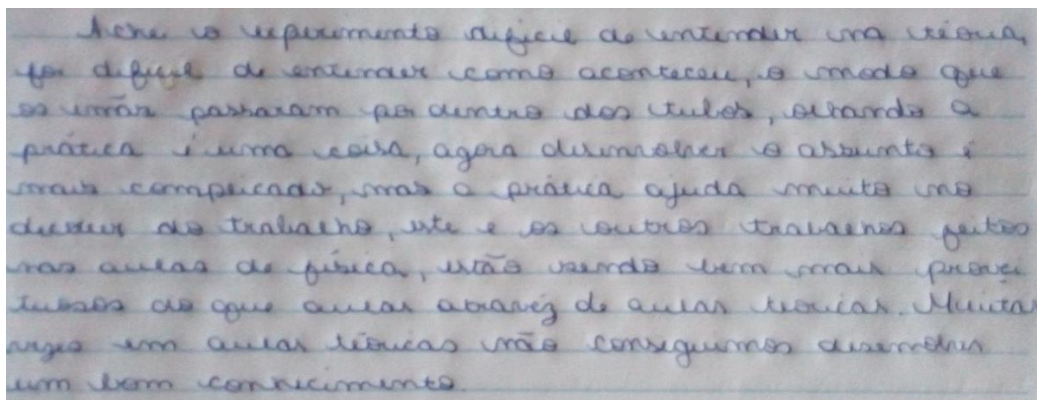 Achei o experimento dificil de entender em téoria,
foi dificil de entender como aconteceu, o modo que
os imãs passaram por dentro dos tubos, olhando a
prática é uma coisa, agora desenvolver o assunto é
mais complicado, mas a prática ajuda muito no
decorrer do trabalho, este e os outros trabalhos feitos
nas aulas de física, estão sendo bem mais provei
tosos do que aulas atravéz de aulas teoricas. Muitas
vezes em aulas téoricas não conseguimos desenvolver
um bom conhecimento.